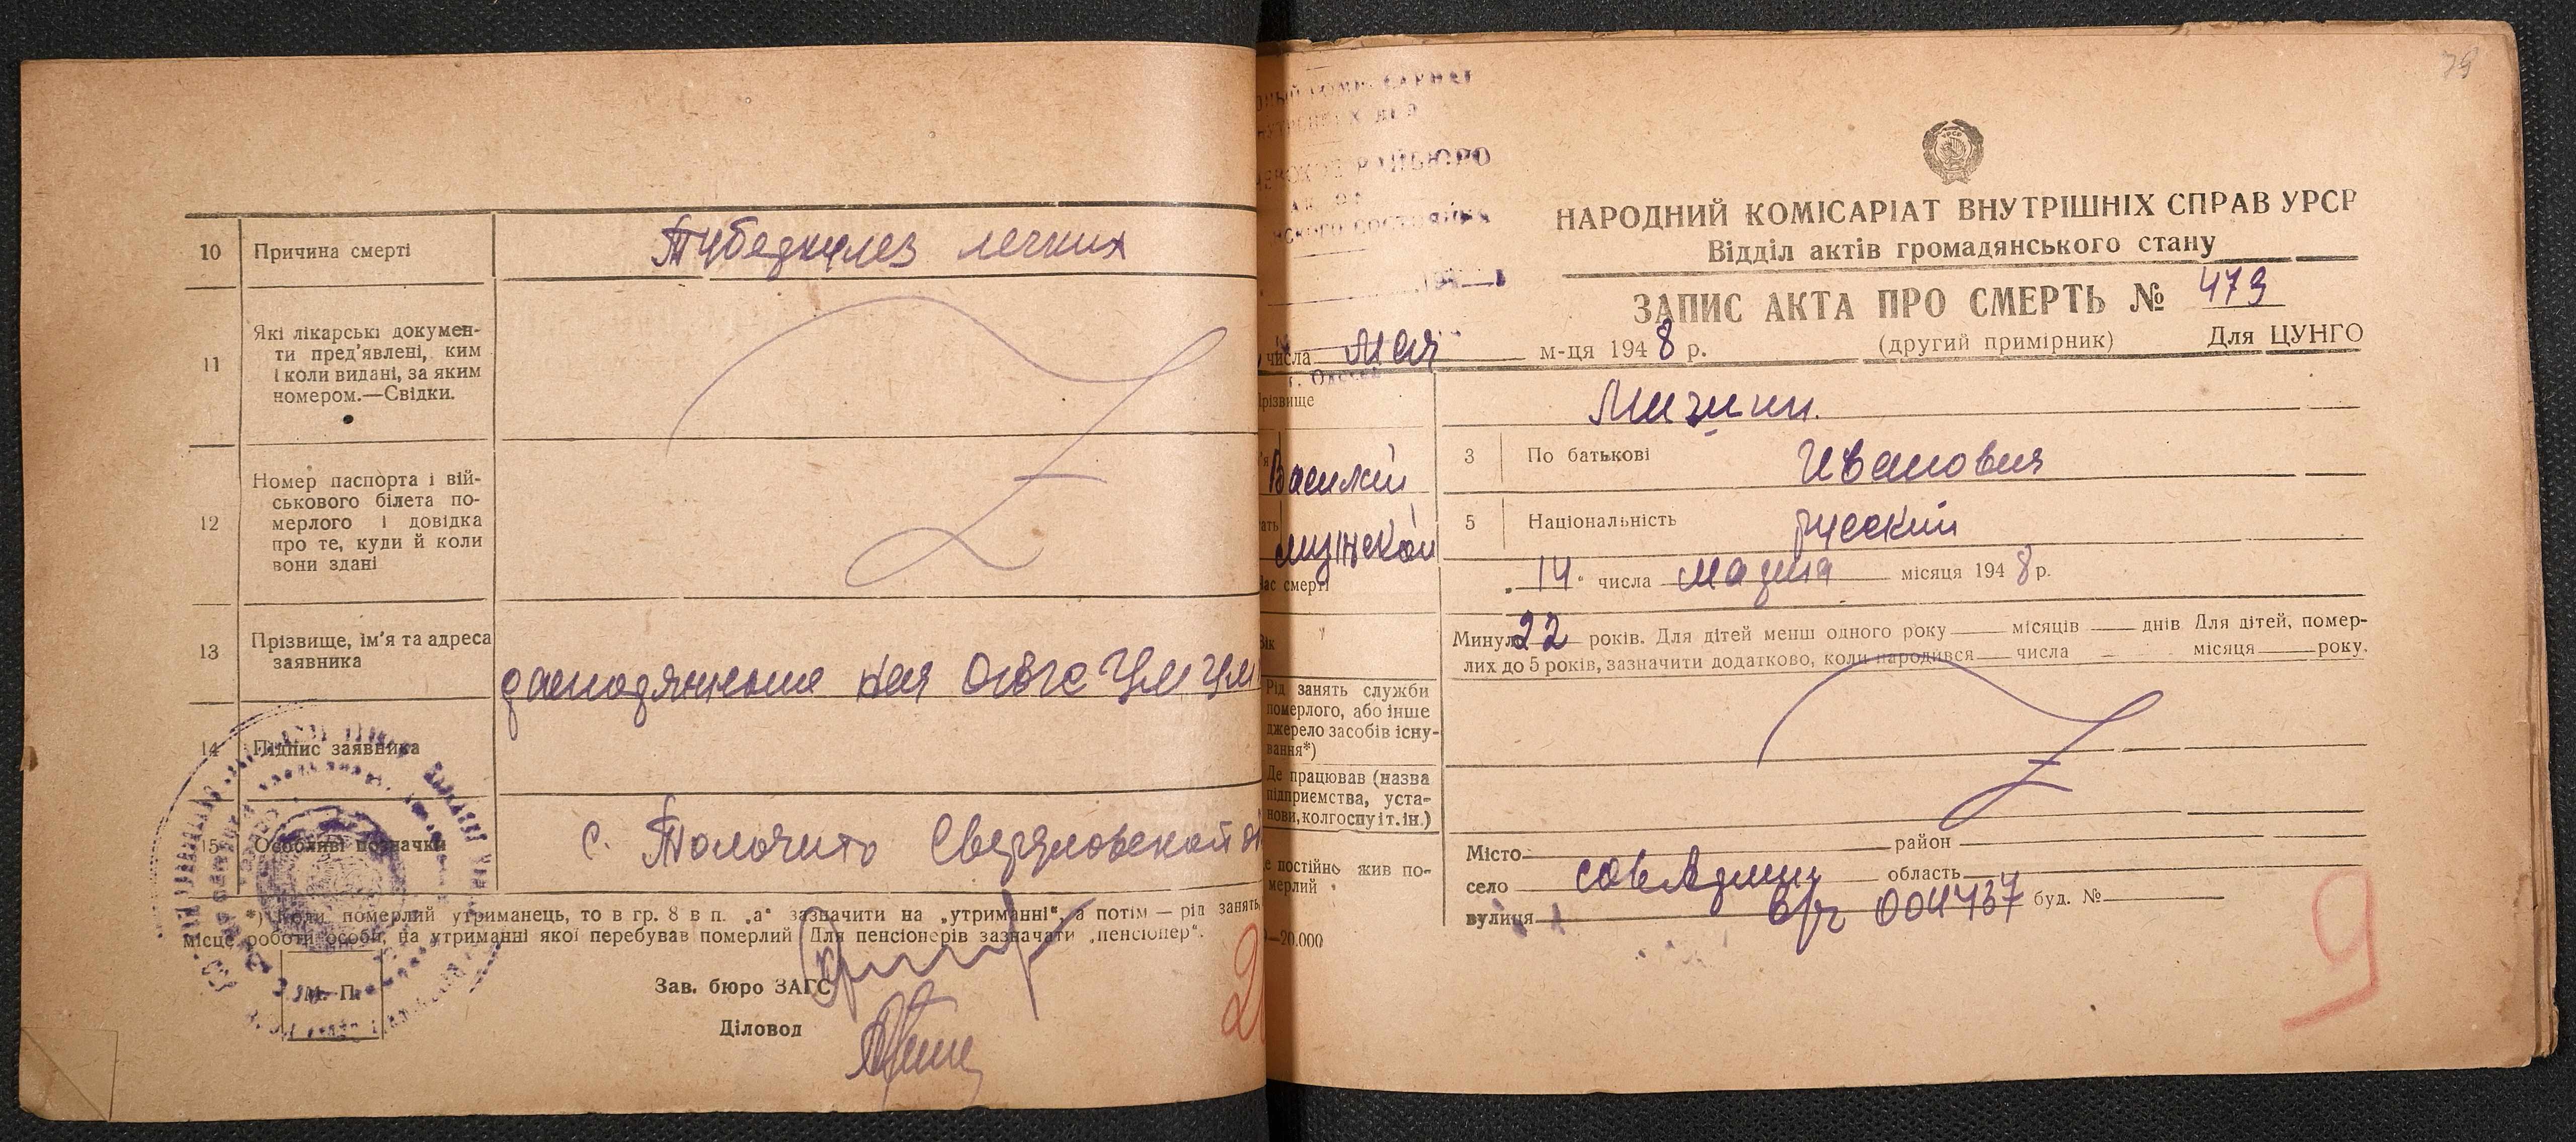 10 Причина смерті Туберкулез легких
11 Які лікарські докумен-
ти пред'явлені, ким
і коли видані, за яким
номером.—Свідки.
12 Номер паспорта і вій-
ськового білета по-
мерлого і довідка
про те, куди й коли
вони здані
13 Прізвище, ім'я та адреса
заявника
14 Підпис заявника
15 Особливі позначки с.
*) Коли померлий утриманець, то в гр. 8 в п. „а" зазначити на „утриманні", а потім — рід занять,
місце роботи особи, на утриманні якої перебував померлий Для пенсіонерів зазначати „пенсіонер".
М. П.
Зав. бюро ЗАГС
Діловод
79
РАЙБЮРО
НАРОДНИЙ КОМІСАРІАТ ВНУТРІШНІХ СПРАВ УРСР
Відділ актів громадянського стану
ЗАПИС АКТА ПРО СМЕРТЬ № 473
числа мая м-ця 1948 р. (другий примірник) Для ЦУНГО
г. Одесса
різвище
Василий 3 По батькові Иванович
ать мужской 5 Національність русский
ас смерті 14 числа марта місяця 1948 р.
ік Минуло 22 років. Для дітей менш одного року місяців днів Для дітей, помер-
лих до 5 років, зазначити додатково, коли народився числа місяця року.
Рід занять служби
померлого, або інше
джерело засобів існу-
вання*)
Де працював (назва
підприємства, уста-
нови, колгоспу і т. ін.)
е постійно жив по-
мерлий
Місто район
село область
вулиця в/ч буд. №
—20.000
9